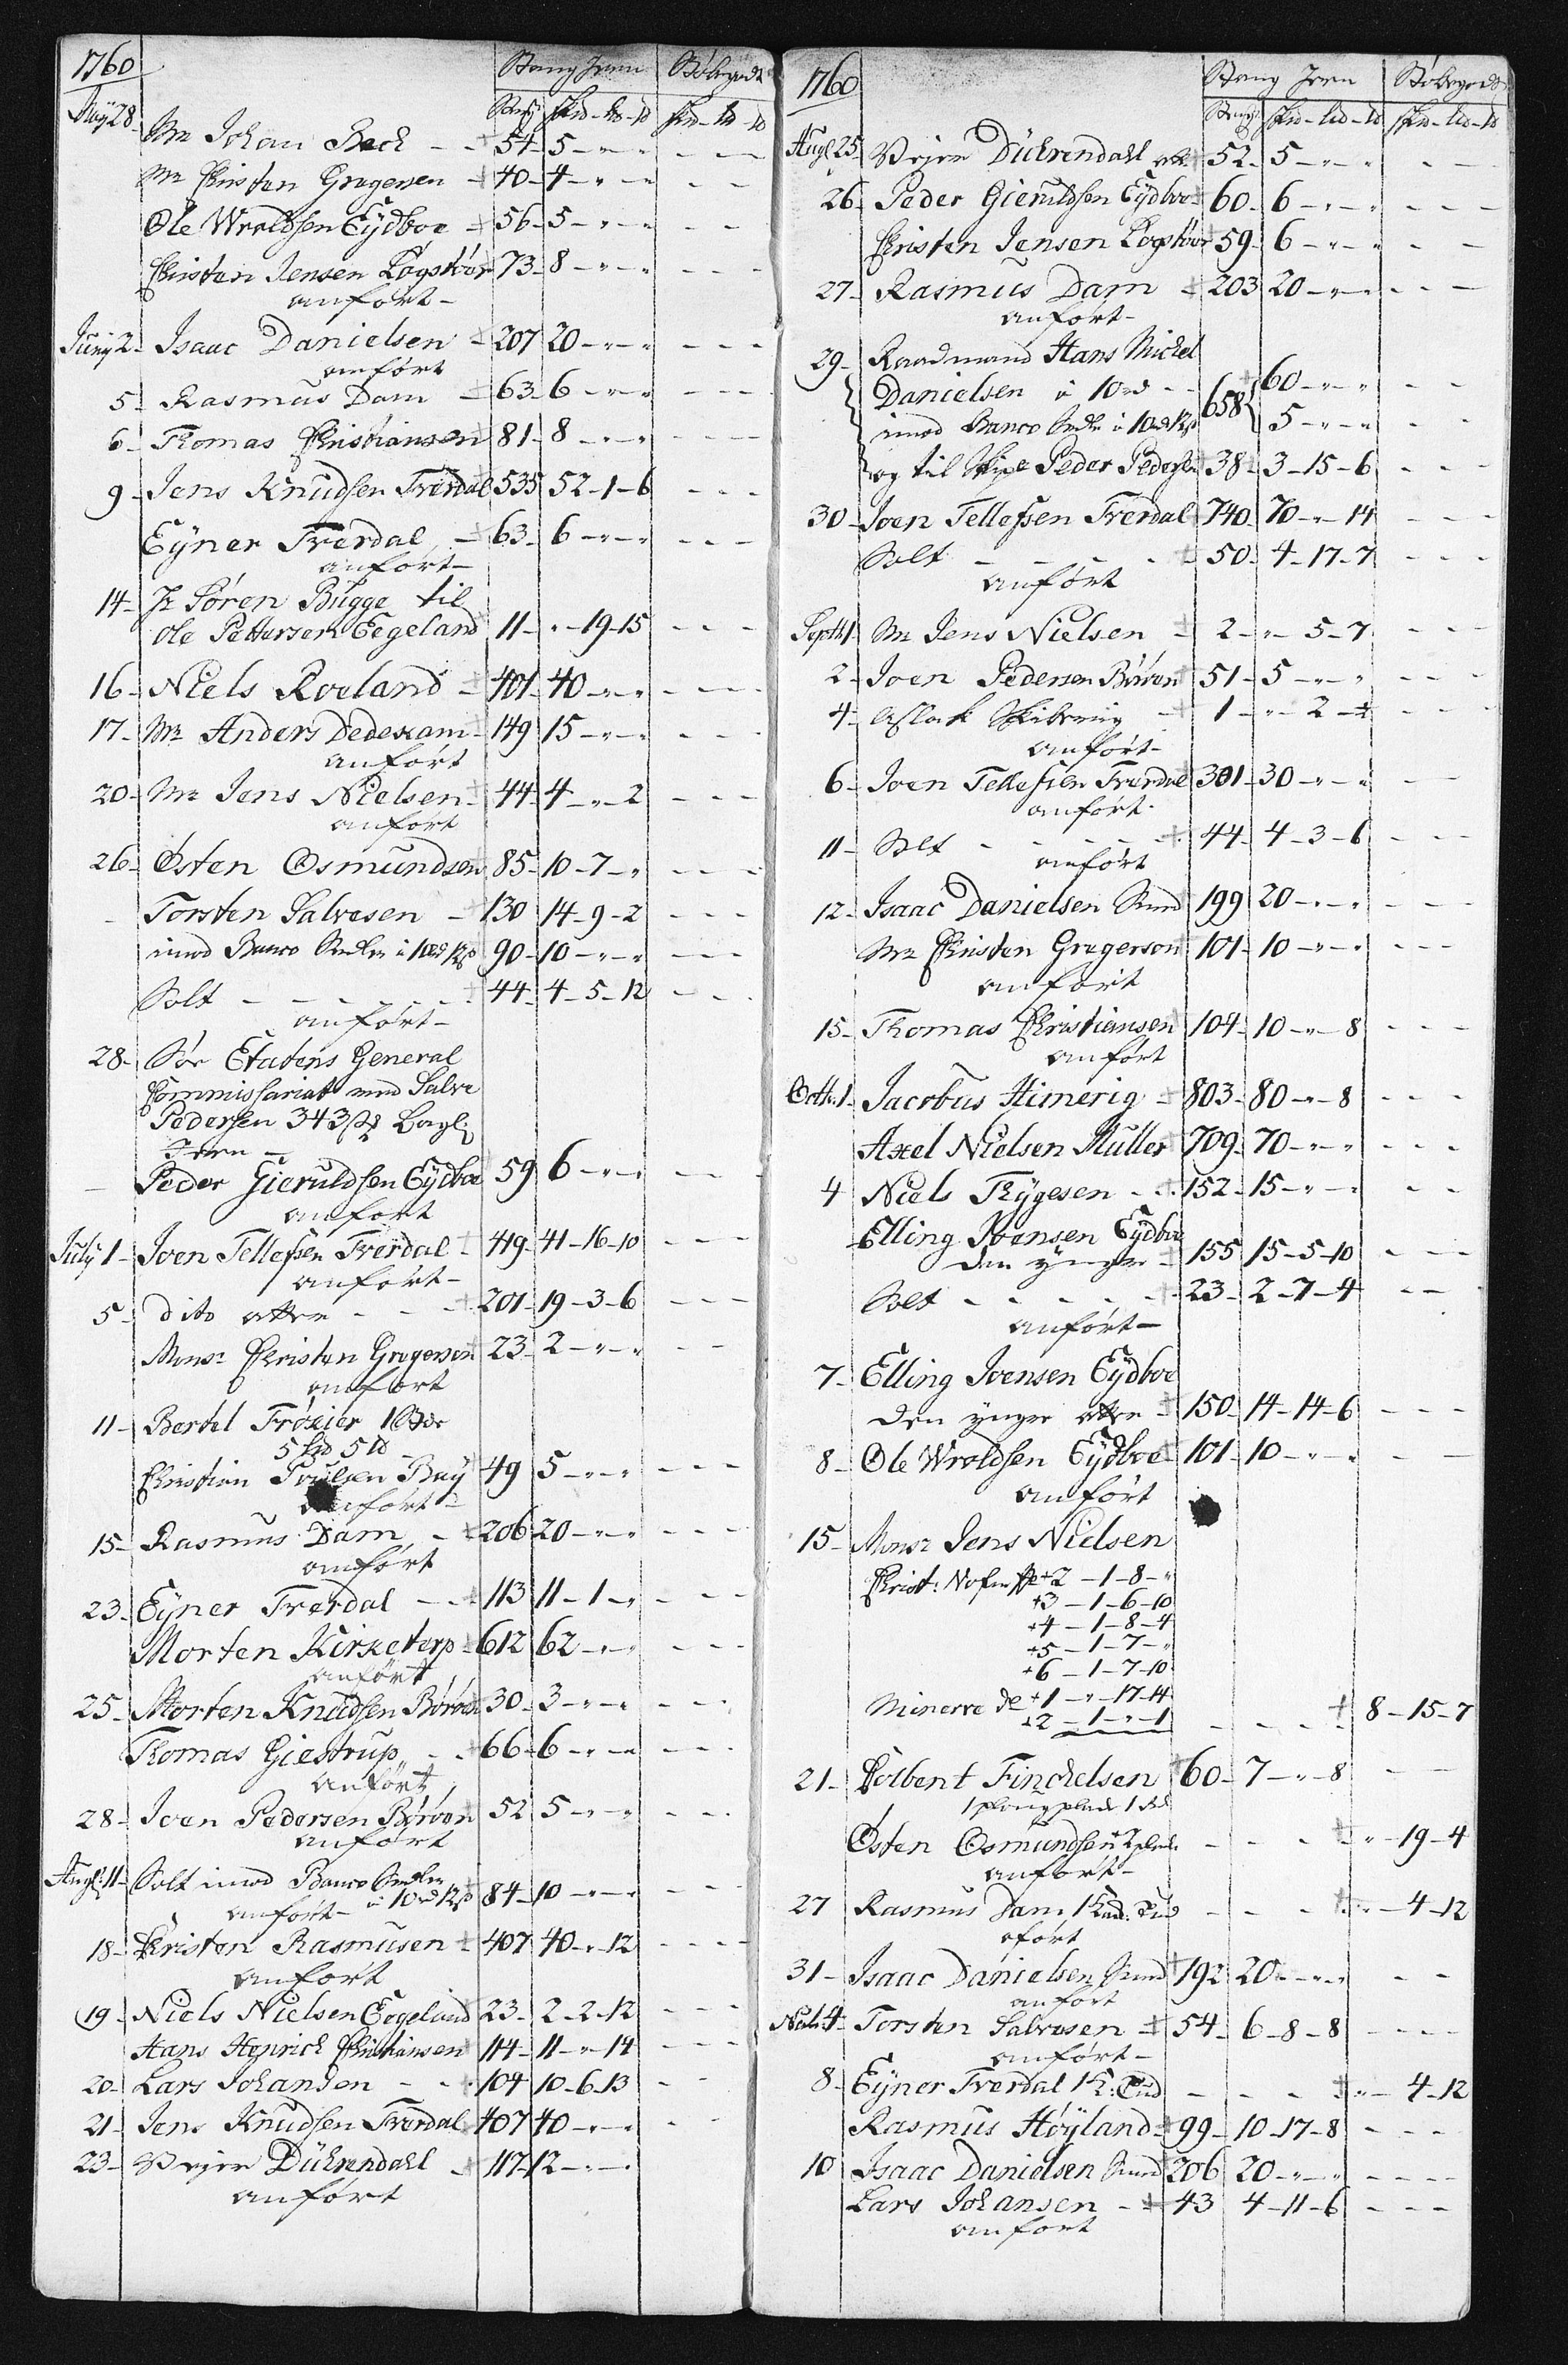 1760 Stang Jern Støbegods
Stang Skd - Ld - ld Skd - Ld - ld
May 28 Mr Johan Bech - 54 - 5 - " - "
Mr Christen Gregersen - 40 - 4 - " - "
Ole Wroldsen Eydboe - 56 - 5 - " - "
Christen Jensen Løgstør 73 - 8 - " - "
anført
Juny 2 - Isaac Danielsen - 207 20 - " - "
anført
5 - Rasmus Dam - 63 - 6 - " - "
6 - Thomas Christiansen 81 - 8 - " - "
9 - Jens Knudsen Tverdal 535 52 - 1 - 6
Eyner Tverdal - 63 - 6 - " - "
anført
14 - Hr Søren Bugge til
Ole Pettersen Eegeland 11 - " - 19 - 15
16 - Niels Roeland - 401 - 40 - " - "
17 - Mr Anders Dedekam - 149 15 - " - "
anført
20 - Mr Jens Nielsen - 44 - 4 - " - 2
anført
26 - Østen Osmundsen 85 - 10 - 7 - "
- Torsten Salvesen - 130 14 - 9 - 2
imod Banco Sedler à 10 90 - 10 - " - "
Solt - - - - 44 - 4 - 5 - 12
anført
28 - Søe Etatens General
Commissariat med Salve
Pedersen 343
Jern -
- Peder Gieruldsen Eydboe 59 6 - " - "
anført
July 1 - Joen Tellefsen Tverdal - 419 - 41 - 16 - 10
anført
5 - dito atter - - 201 - 19 - 3 - 6
Monsr Christen Gregersen 23 - 2 - " - "
anført
11 - Bertel Trøxier
Christian Poulsen Buy 49 5 - " - "
anført
15 - Rasmus Dam - 206 20 - " - "
anført
23 - Eyner Tverdal - - 113 11 - 1 - "
Morten Kirketerp - 612 62 - " - "
anført
25 - Morten Knudsen Børøen 30 - 3 - " - "
Thomas Giestrup - - 66 - 6 - " - "
anført
28 - Joen Pedersen Børøen 52 5 - " - "
anført
Augt 11 - Solt imod Banco Sedler
anført - à 10 84 - 10 - " - "
18 - Kristen Rasmusen - 407 40 - " - 12
anført
19 - Niels Nielsen Eegeland 23 - 2 - 2 - 12
Hans Henrich Christiansen 114 - 11 - " - 14
20 - Lars Johansen - - 104 10 - 6 - 13
21 - Jens Knudsen Tverdal 407 40 - " - "
23 - Vejer Dührendahl - 117 - 12 - " - "
anført
1760 Stang Jern Støbegods
Stang Skd - Ld - ld Skd - Ld - ld
Augt 25 Vejer Dührendahl att 52 - 5 - " - "
26 - Peder Gieruldsen Eydboe 60 - 6 - " - "
Christen Jensen Løgstør 59 - 6 - " - "
27 - Rasmus Dam - 203 20 - " - "
anført
29 - Raadmand Hans Michel
Danielsen à 10 - - 658 60 - " - "
imod Banco Sedler à 10 5 - " - "
og til Peder Pedersen 38 - 3 - 15 - 6
30 - Joen Tellefsen Tverdal 740 - 70 - " - 14
Solt - - - - 50 - 4 - 17 - 7
anført
Septb 1 Mr Jens Nielsen - 2 - " - 5 - 7
2 - Joen Pedersen Børøen 51 - 5 - " - "
4 - Aslack - 1 - " - 2 -
anført
6 - Joen Tellefsen Tverdal 301 - 30 - " - "
anført
11 - Solt - - - - 44 - 4 - 3 - 6
anført
12 - Isaac Danielsen Sund 199 20 - " - "
Mr Christen Gregersen 101 - 10 - " - "
anført
15 - Thomas Christiansen 104 - 10 - " - 8
anført
Octb. 1 - Jacobus Himerig - 803 - 80 - " - 8
Axel Nielsen Muller 709 - 70 - " - "
4 Niels Thygesen - - 152 - 15 - " - "
Elling Joensen Eydboe
den yngre - 155 15 - 5 - 10
Solt - - - - 23 - 2 - 7 - 4
anført
7 - Elling Joensen Eydboe
den yngre atter - 150 - 14 - 14 - 6
8 - Ole Wroldsen Eydboe 101 - 10 - " - "
anført
15 - Monsr Jens Nielsen
+2 - 1 - 8 - "
+3 - 1 - 6 - 10
+4 - 1 - 8 - 4
+5 - 1 - 7 - "
+6 - 1 - 7 - 10
Minerve de +1 - " - 17 - 14
+2 - 1 - " - 1 - - - 8 - 15 - 7
21 - Colbent Finckelsen 60 - 7 - " - 8
Østen Osmundsen - - - " - 19 - 4
anført
27 Rasmus Dam 1 - - - " - 4 - 12
ført
31 - Isaac Danielsen Sund 192 20 - " - "
anført
Novb 4 - Torsten Salvesen - 54 - 6 - 8 - 8
anført
8 - Eyner Tverdal 1 - - - " - 4 - 12
Rasmus Høyland - 99 - 10 - 17 - 8
10 Isaac Danielsen Sund 206 20 - " - "
Lars Johansen - 43 4 - 11 - 6
anført